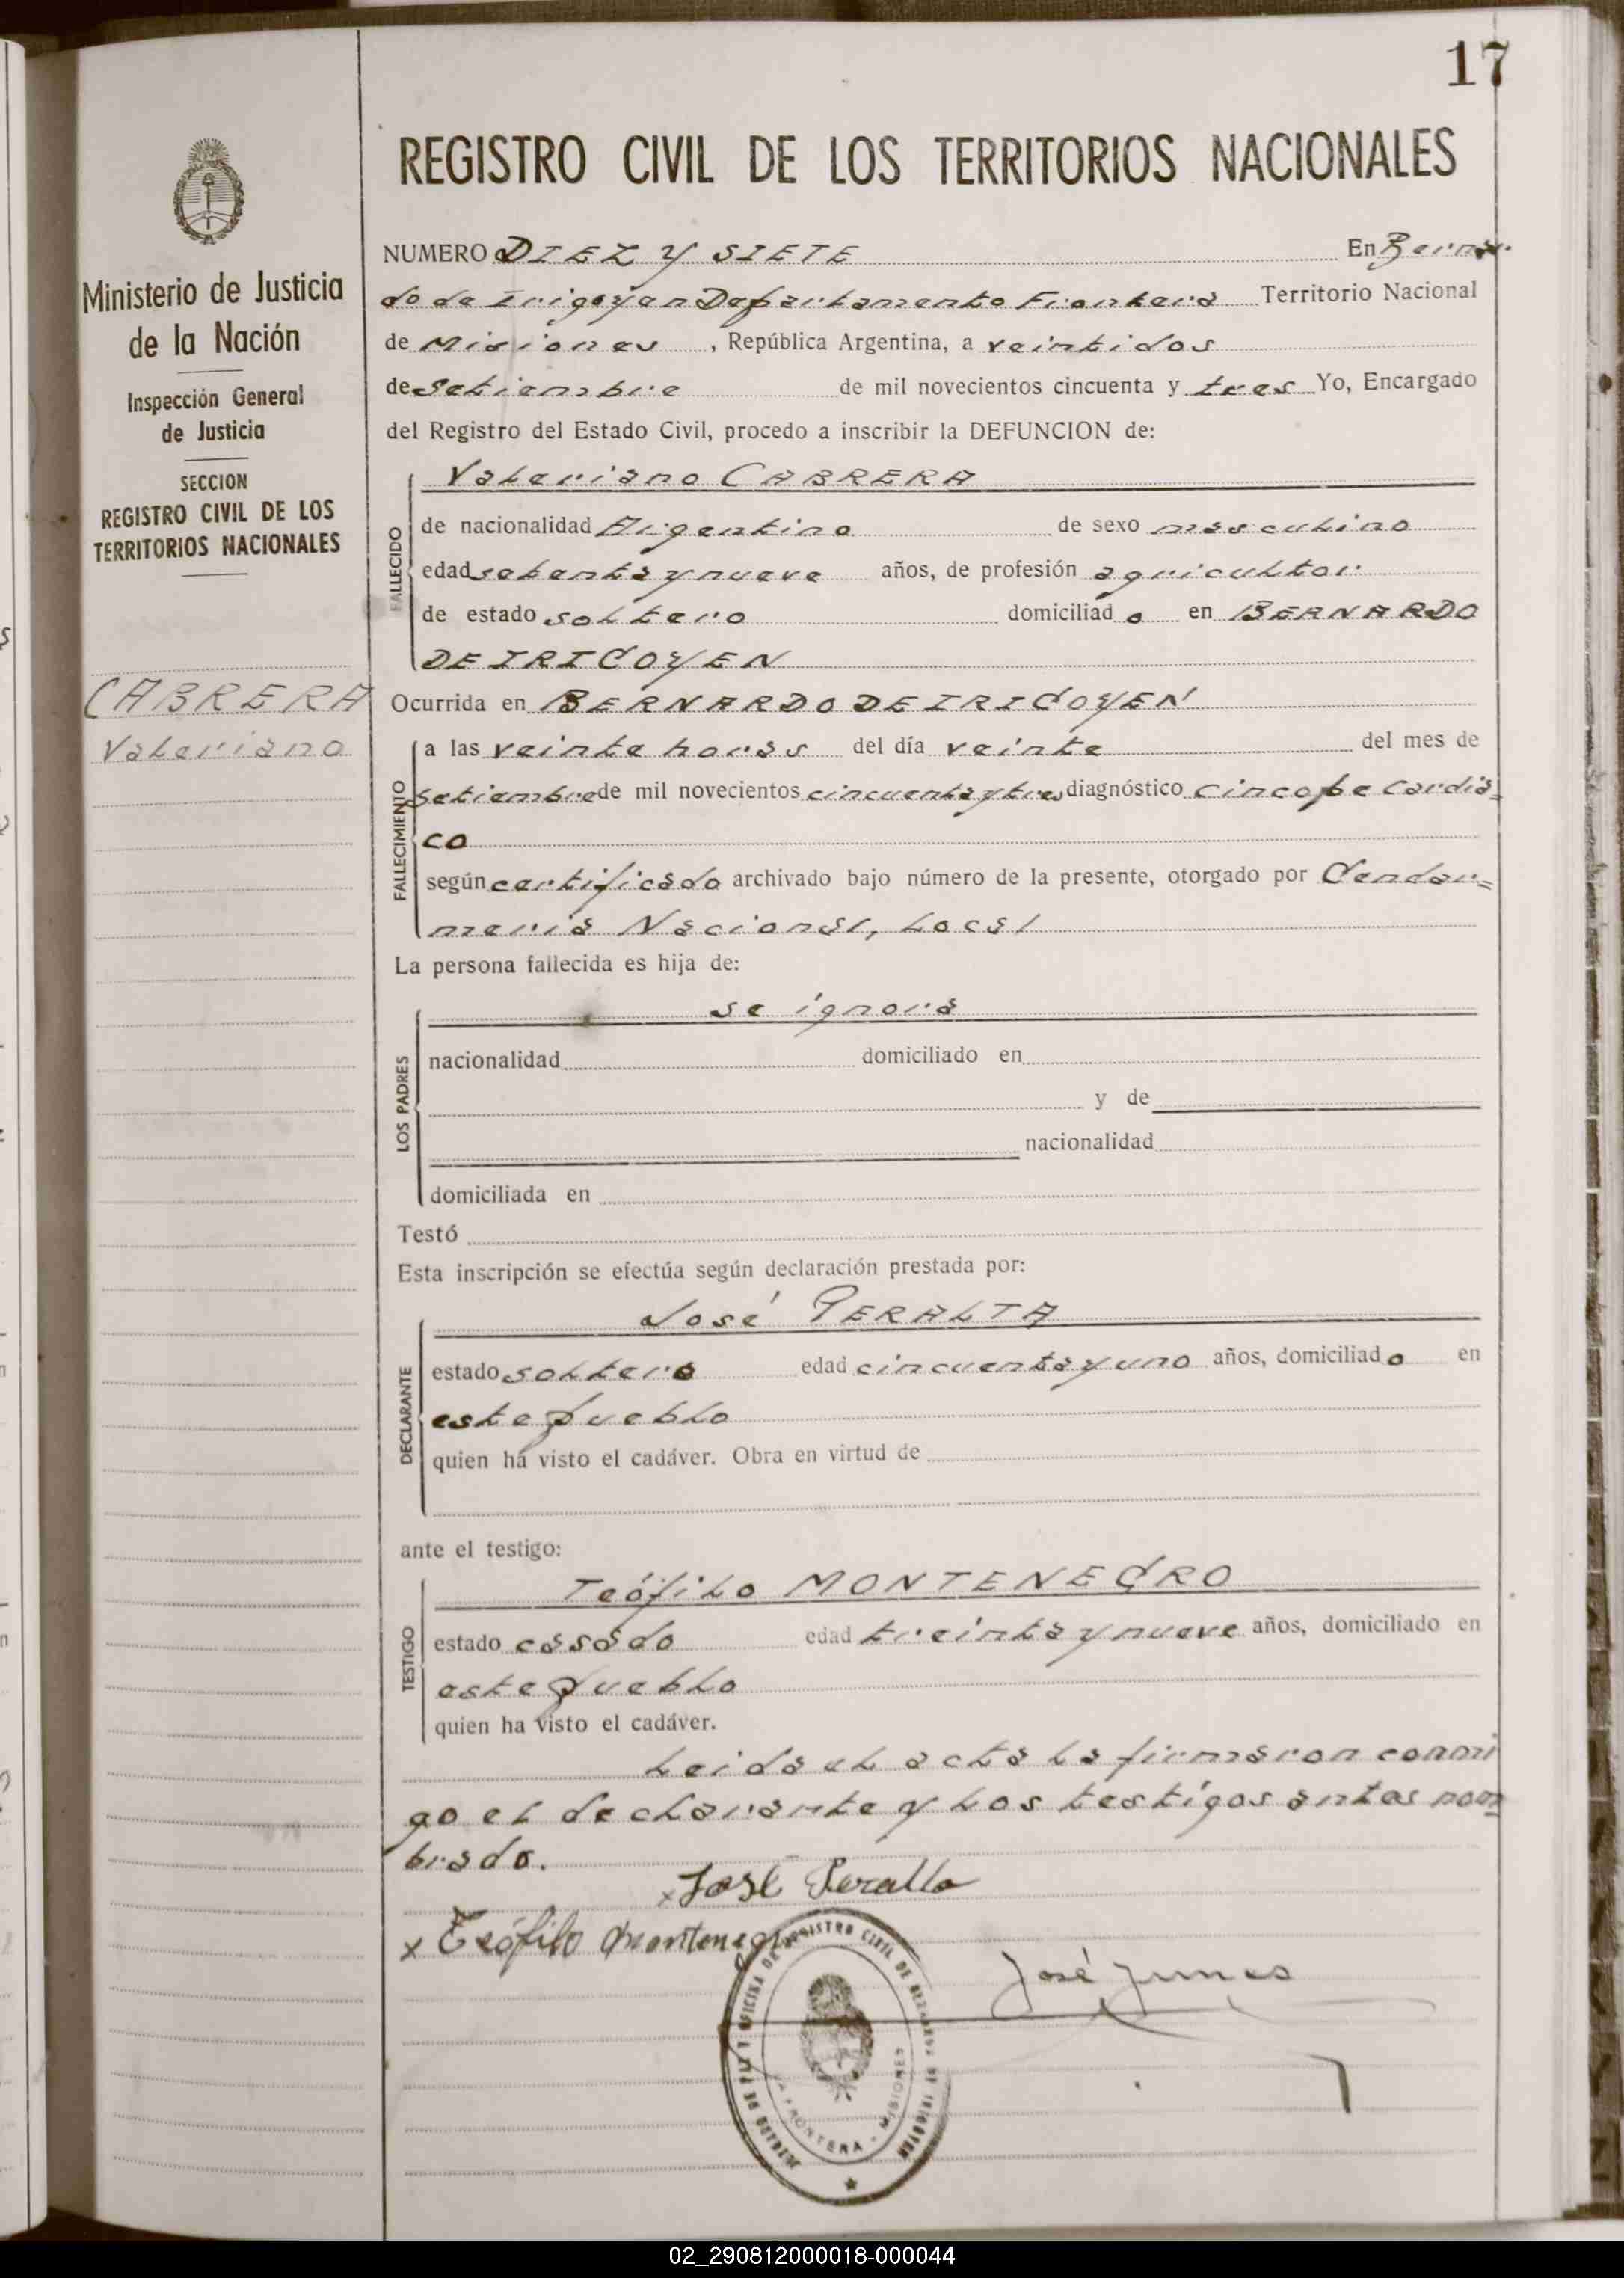 17
REGISTRO CIVIL DE LOS TERRITORIOS NACIONALES
Ministerio de Justicia
de la Nación
Inspección General
de Justicia
SECCION
REGISTRO CIVIL DE LOS
TERRITORIOS NACIONALES
CABRERA
Valeriano
NUMERO DIEZ Y SIETE En Bernar-
do de Irigoyen Departamento Frontera Territorio Nacional
de Misiones, República Argentina, a veintidos
de Setiembre de mil novecientos cincuenta y tres Yo, Encargado
del Registro del Estado Civil, procedo a inscribir la DEFUNCION de:
Valeriano CABRERA
FALLECIDO
de nacionalidad Argentino de sexo masculino
edad setenta y nueve años, de profesión agricultor
de estado soltero domiciliado en BERNARDO
DE IRIGOYEN
Ocurrida en BERNARDO DE IRIGOYEN
FALLECIMIENTO
a las veinte horas del día veinte del mes de
Setiembre de mil novecientos cincuenta y tres diagnóstico Cincope Cardia=
co
según certificado archivado bajo número de la presente, otorgado por Gendar=
meria Nacional, Local
La persona fallecida es hija de:
se ignora
LOS PADRES
nacionalidad domiciliado en
y de
nacionalidad
domiciliada en
Testó
Esta inscripción se efectúa según declaración prestada por:
José PERALTA
DECLARANTE
estado soltero edad cincuenta y uno años, domiciliado en
este pueblo
quien ha visto el cadáver. Obra en virtud de
ante el testigo:
Teófilo MONTENEGRO
TESTIGO
estado casado edad treinta y nueve años, domiciliado en
este pueblo
quien ha visto el cadáver.
Leida el acta la firmaron conmi
go el declarante y los testigos antes nom=
brado.
x José Peralta
x Teófilo Montenegro
José
JUZGADO DE PAZ Y OFICINA DE REGISTRO CIVIL DE BERNARDO DE IRIGOYEN
FRONTERA - MISIONES
02_290812000018-000044